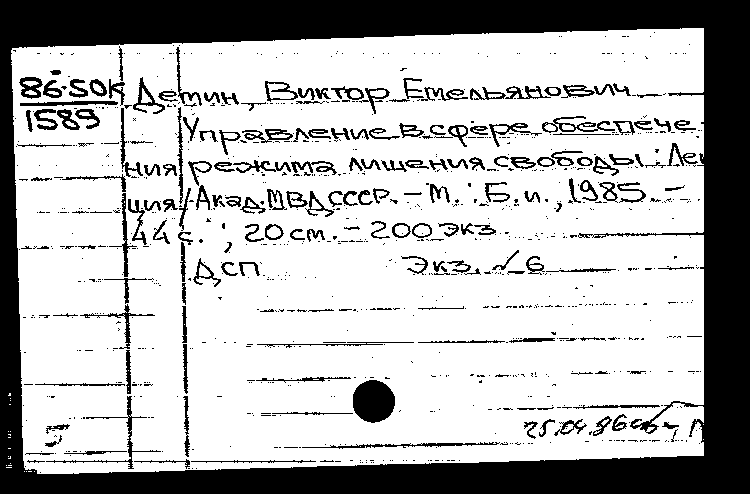 86-50К
1589
Детин, Виктор Емельянович
Управление в сфере обеспече-
ния режима лишения свободы: Лек
ция / Акад. МВД СССР. - М.: Б. и., 1985. -
44 с.; 20 см. - 200 экз.
ДСП Экз. № 6
5
25.04.86